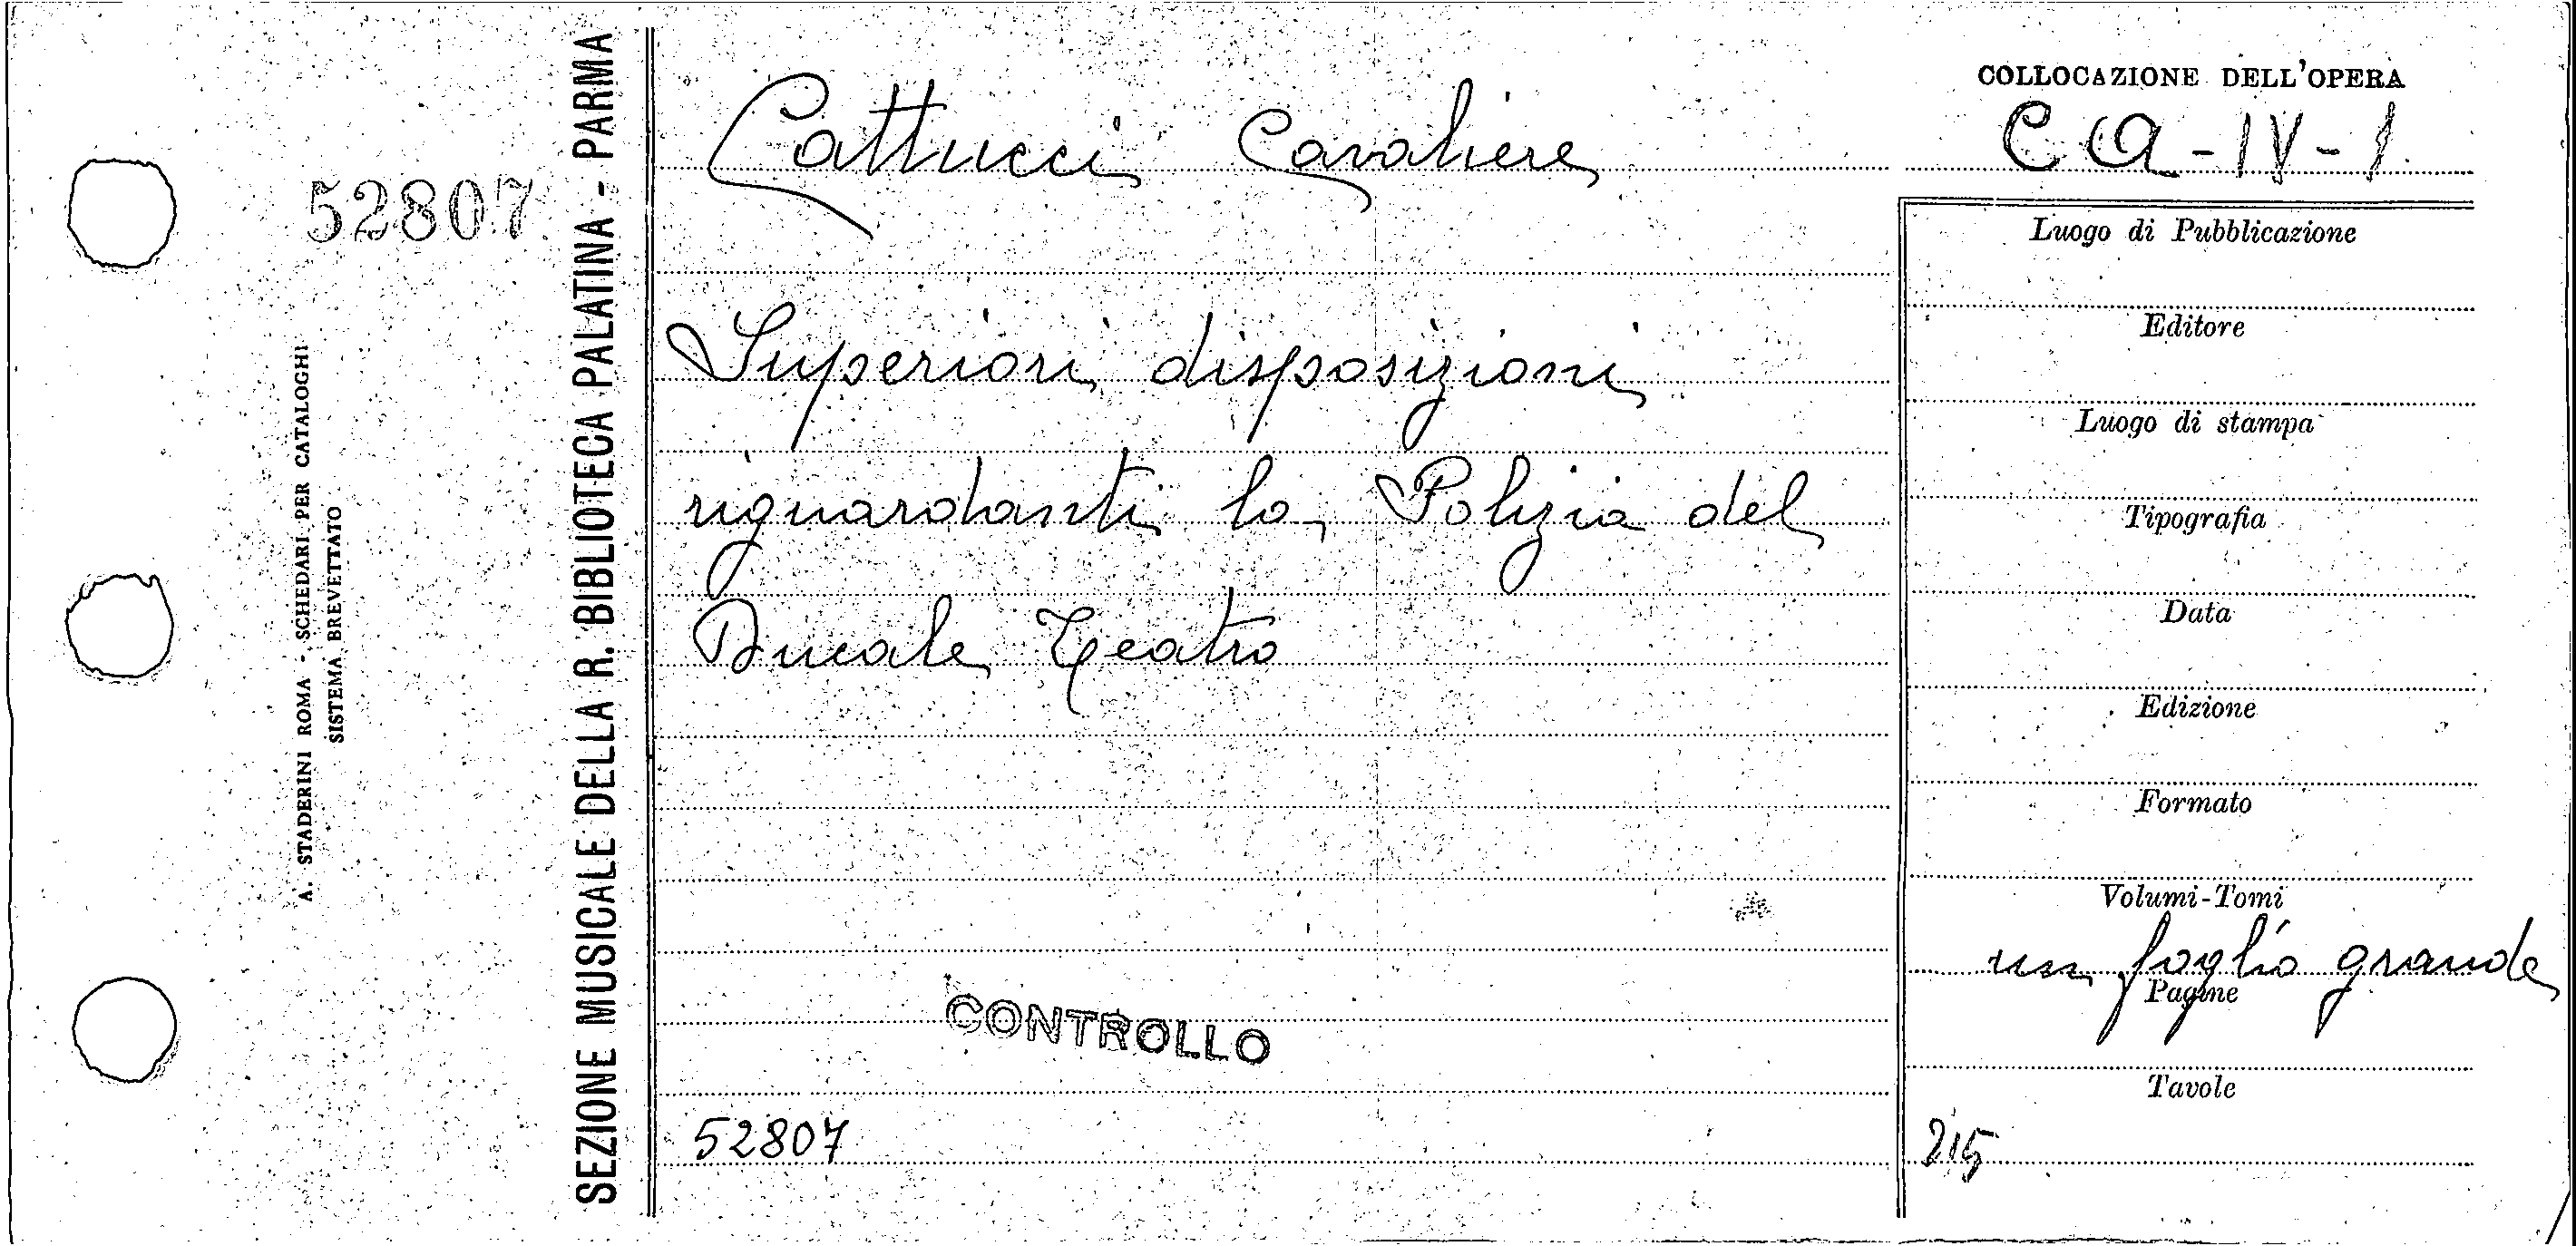 52807
A. STADERINI ROMA - SCHEDARI PER CATALOGHI
SISTEMA BREVETTATO
SEZIONE MUSICALE DELLA R. BIBLIOTECA PALATINA - PARMA
Cattucci Cavaliere
Superiori disposizioni
riguardanti la Polizia del
Ducale Teatro
CONTROLLO
52807
COLLOCAZIONE DELL'OPERA
CA-IV-1
Luogo di Pubblicazione
Editore
Luogo di stampa
Tipografia
Data
Edizione
Formato
Volumi-Tomi
un foglio grande
Pagine
Tavole
215